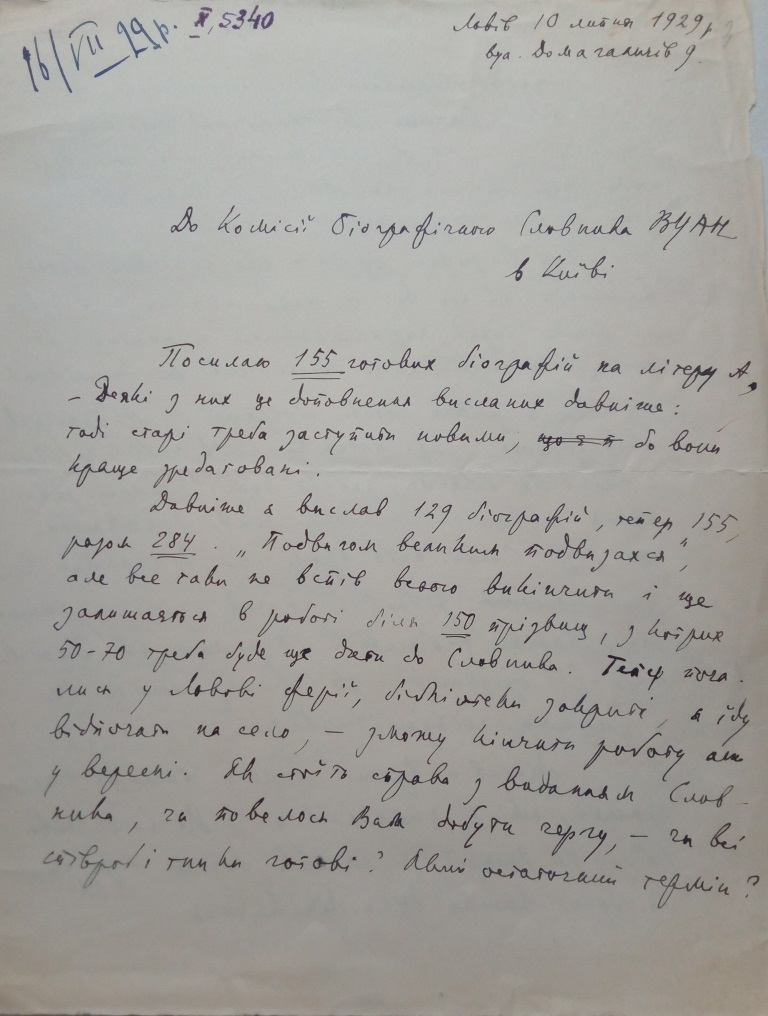 16/VII 29 р. X, 5340
Львів 10 липня 1929 р
вул. Домагаличів 9.
До Комісії Біографічного Словника ВУАН
в Київі
Посилаю 155 готових біографій на літеру А,
– Деякі з них це доповнення висланих давніше:
тоді старі треба заступити новими, бо вони
краще зредаговані.
Давніше я вислав 129 біографій, тепер 155,
разом 284. „Подвигом великим подвизахся",
але все таки не встиг всього викінчити і ще
залишається в роботі біля 150 прізвищ, з котрих
50–70 треба буде ще дати до Словника. Тепер поча-
лися у Львові ферії, бібліотеки закриті, я їду
відпочати на село, – зможу кінчити роботу аж
у вересні. Як стоїть справа з виданням Слов-
ника, чи повелося Вам добути чергу, – чи всі
співробітники готові? Який остаточний термін?